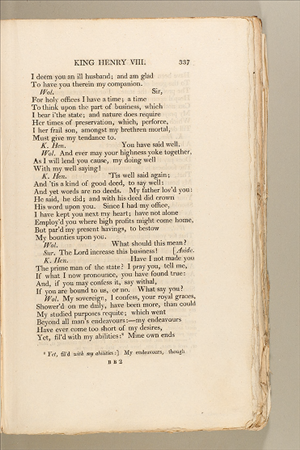 KING HENRY VIII. 337
I deem you an ill husband; and am glad
To have you therein my companion.
Wol. Sir,
For holy offices I have a time; a time
To think upon the part of business, which
I bear i'the state; and nature does require
Her times of preservation, which, perforce,
I her frail son, amongst my brethren mortal,
Must give my tendance to.
K. Hen. You have said well.
Wol. And ever may your highness yoke together,
As I will lend you cause, my doing well
With my well saying!
K. Hen. 'Tis well said again;
And 'tis a kind of good deed, to say well:
And yet words are no deeds. My father lov'd you:
He said, he did; and with his deed did crown
His word upon you. Since I had my office,
I have kept you next my heart; have not alone
Employ'd you where high profits might come home,
But par'd my present havings, to bestow
My bounties upon you.
Wol. What should this mean?
Sur. The Lord increase this business! [Aside.
K. Hen. Have I not made you
The prime man of the state? I pray you, tell me,
If what I now pronounce, you have found true:
And, if you may confess it, say withal,
If you are bound to us, or no. What say you?
Wol. My sovereign, I confess, your royal graces,
Shower'd on me daily, have been more, than could
My studied purposes requite; which went
Beyond all man's endeavours:—my endeavours
Have ever come too short of my desires,
Yet, fil'd with my abilities:⁴ Mine own ends
⁴ Yet, fil'd with my abilities:] My endeavours, though
BB2